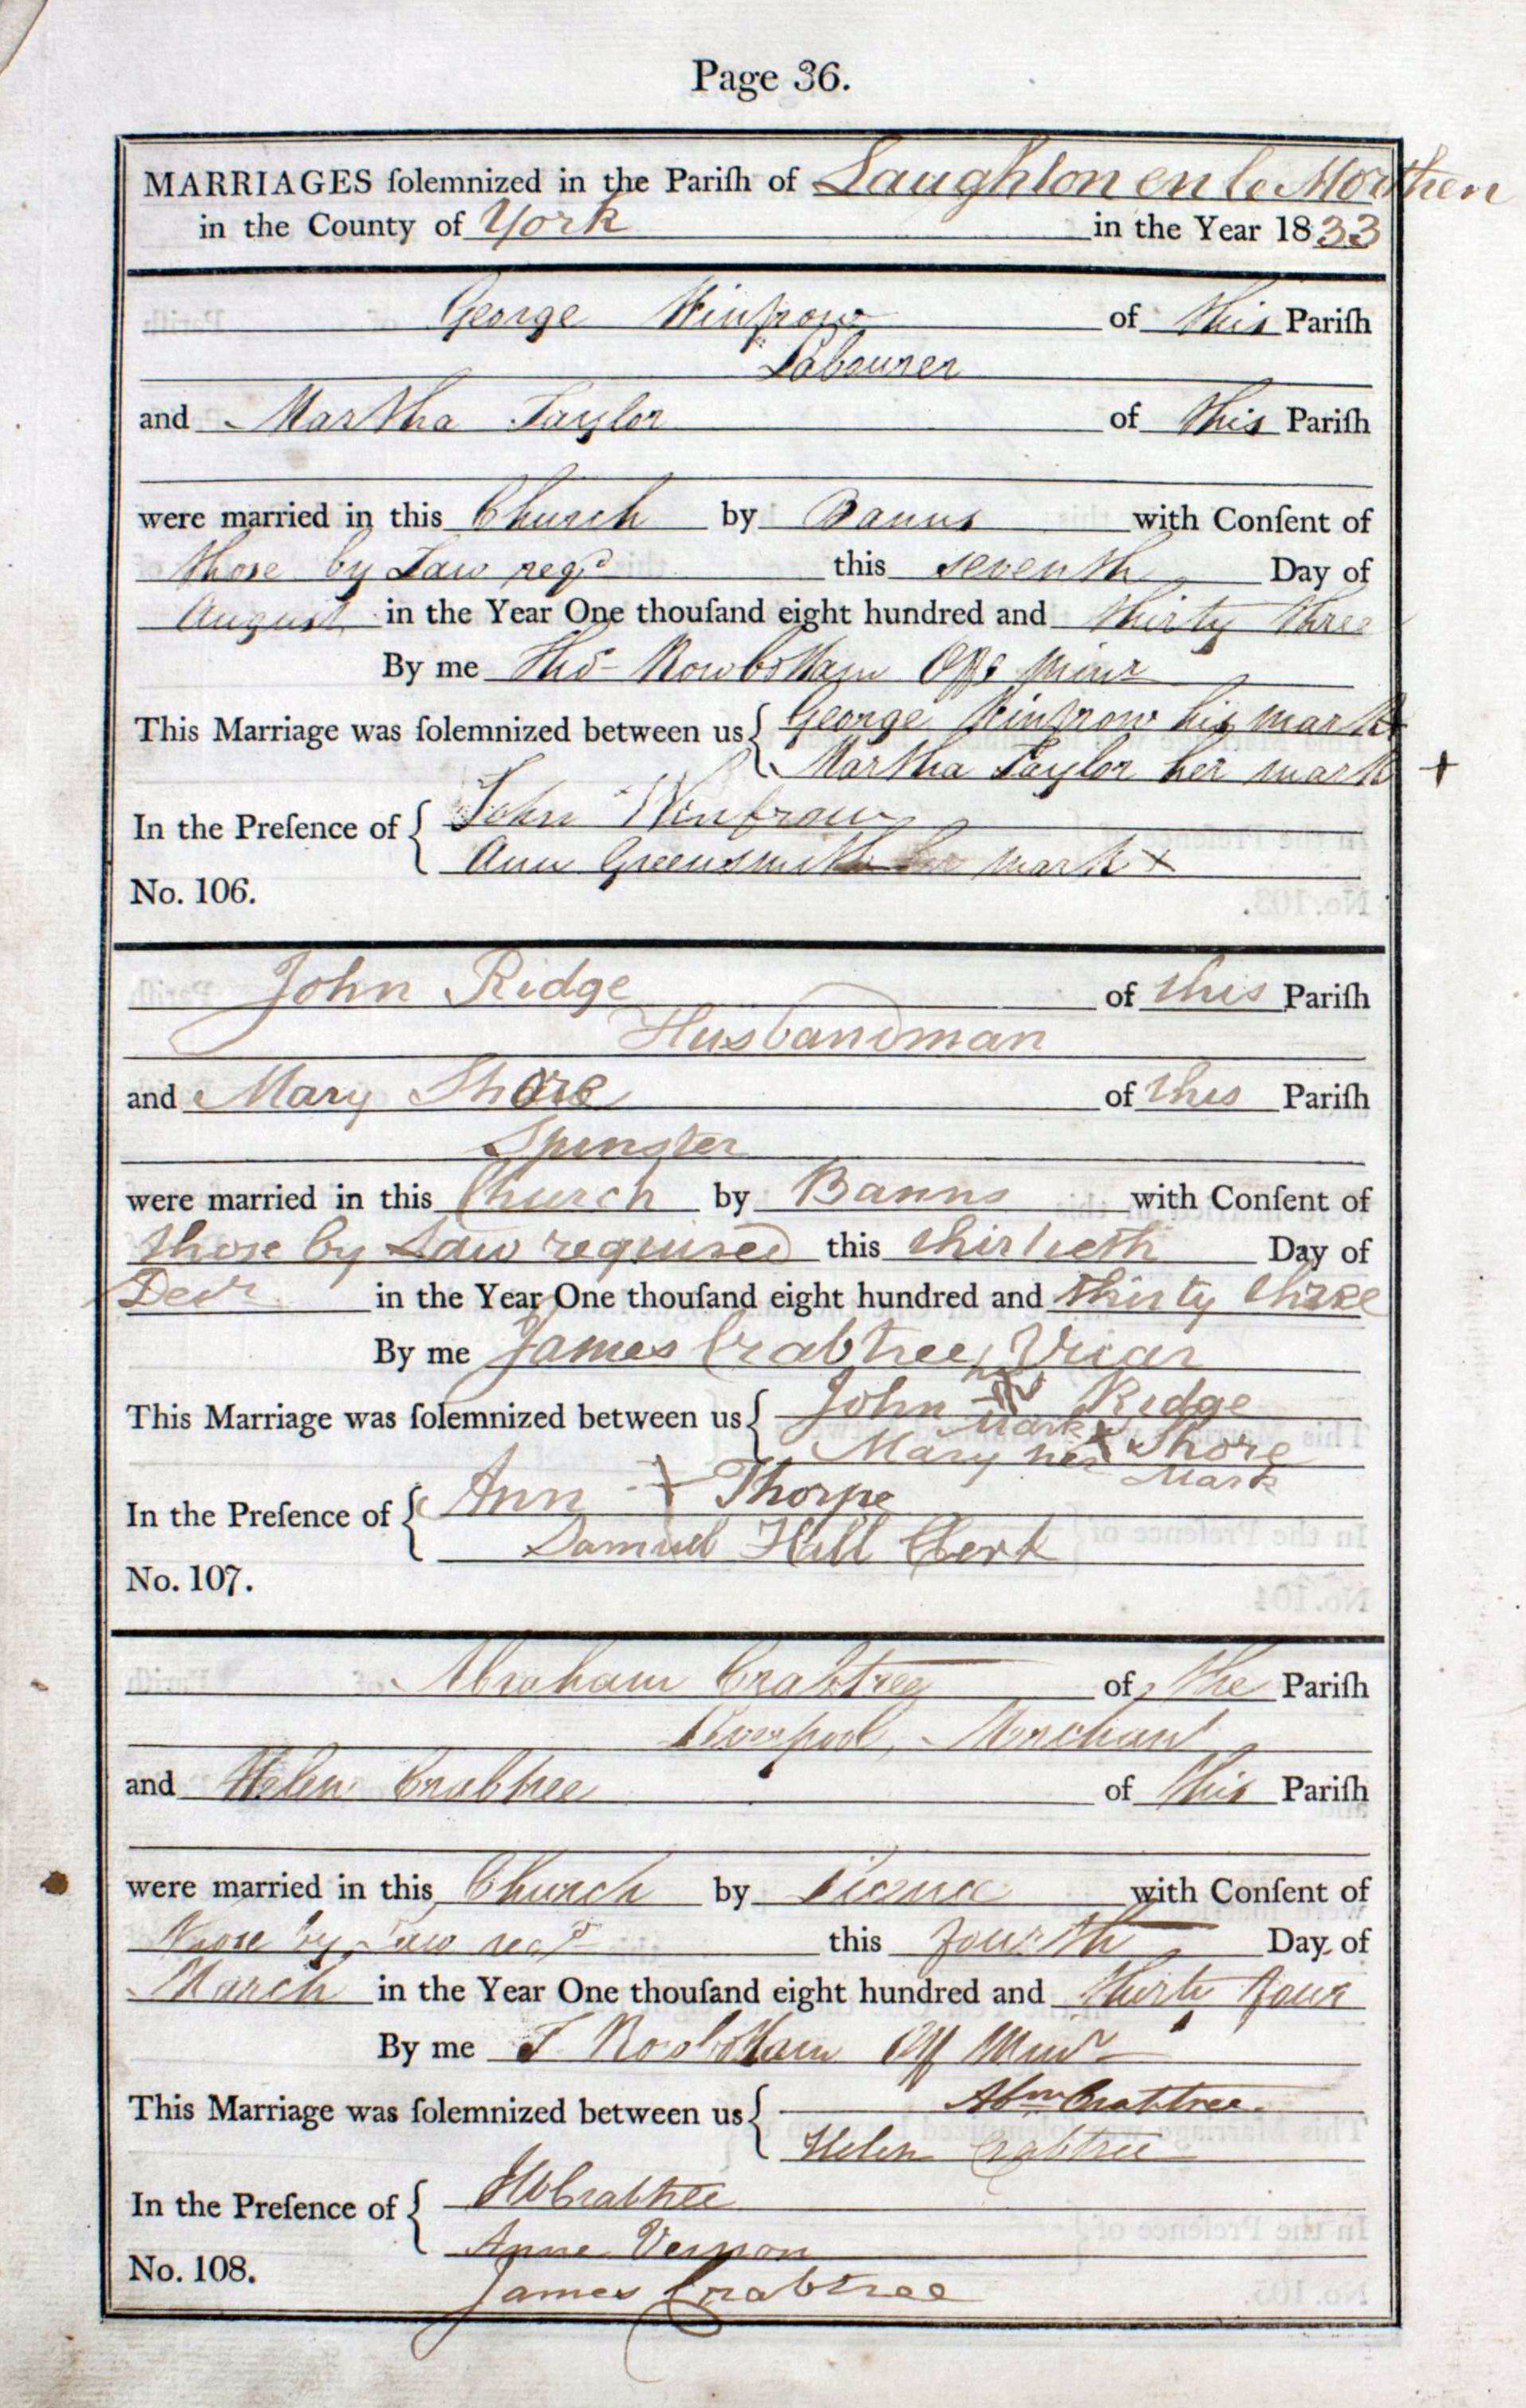 Page 36.
MARRIAGES ſolemnized in the Pariſh of Laughton en le Morthen
in the County of York in the Year 1833
George Winfrow of this Pariſh
Labourer
and Martha Taylor of this Pariſh
were married in this Church by Banns with Conſent of
those by Law reqd this seventh Day of
August in the Year One thouſand eight hundred and thirty three
By me Thos Rowbotham Offg Minr
This Marriage was ſolemnized between us { George Winfrow his mark
Martha Taylor her mark +
In the Preſence of { John Winfrow
Ann Greensmith her mark X
No. 106.
John Ridge of this Pariſh
Husbandman
and Mary Shore of this Pariſh
Spinster
were married in this Church by Banns with Conſent of
those by Law required this thirtieth Day of
Decr in the Year One thouſand eight hundred and thirty three
By me James Crabtree, Vicar
This Marriage was ſolemnized between us { John his X Mark Ridge
Mary her X Shore
Mark
In the Preſence of { Ann + Thorpe
Samuel Hall Clerk
No. 107.
Abraham Crabtree of the Pariſh
Liverpool, Merchant
and Helen Crabtree of this Pariſh
were married in this Church by Licence with Conſent of
those by Law reqd this fourth Day of
March in the Year One thouſand eight hundred and thirty four
By me T. Rowbotham Off Minr
This Marriage was ſolemnized between us { Abm Crabtree.
Helen Crabtree
In the Preſence of { Crabtree
Anne Vernon
No. 108. James Crabtree